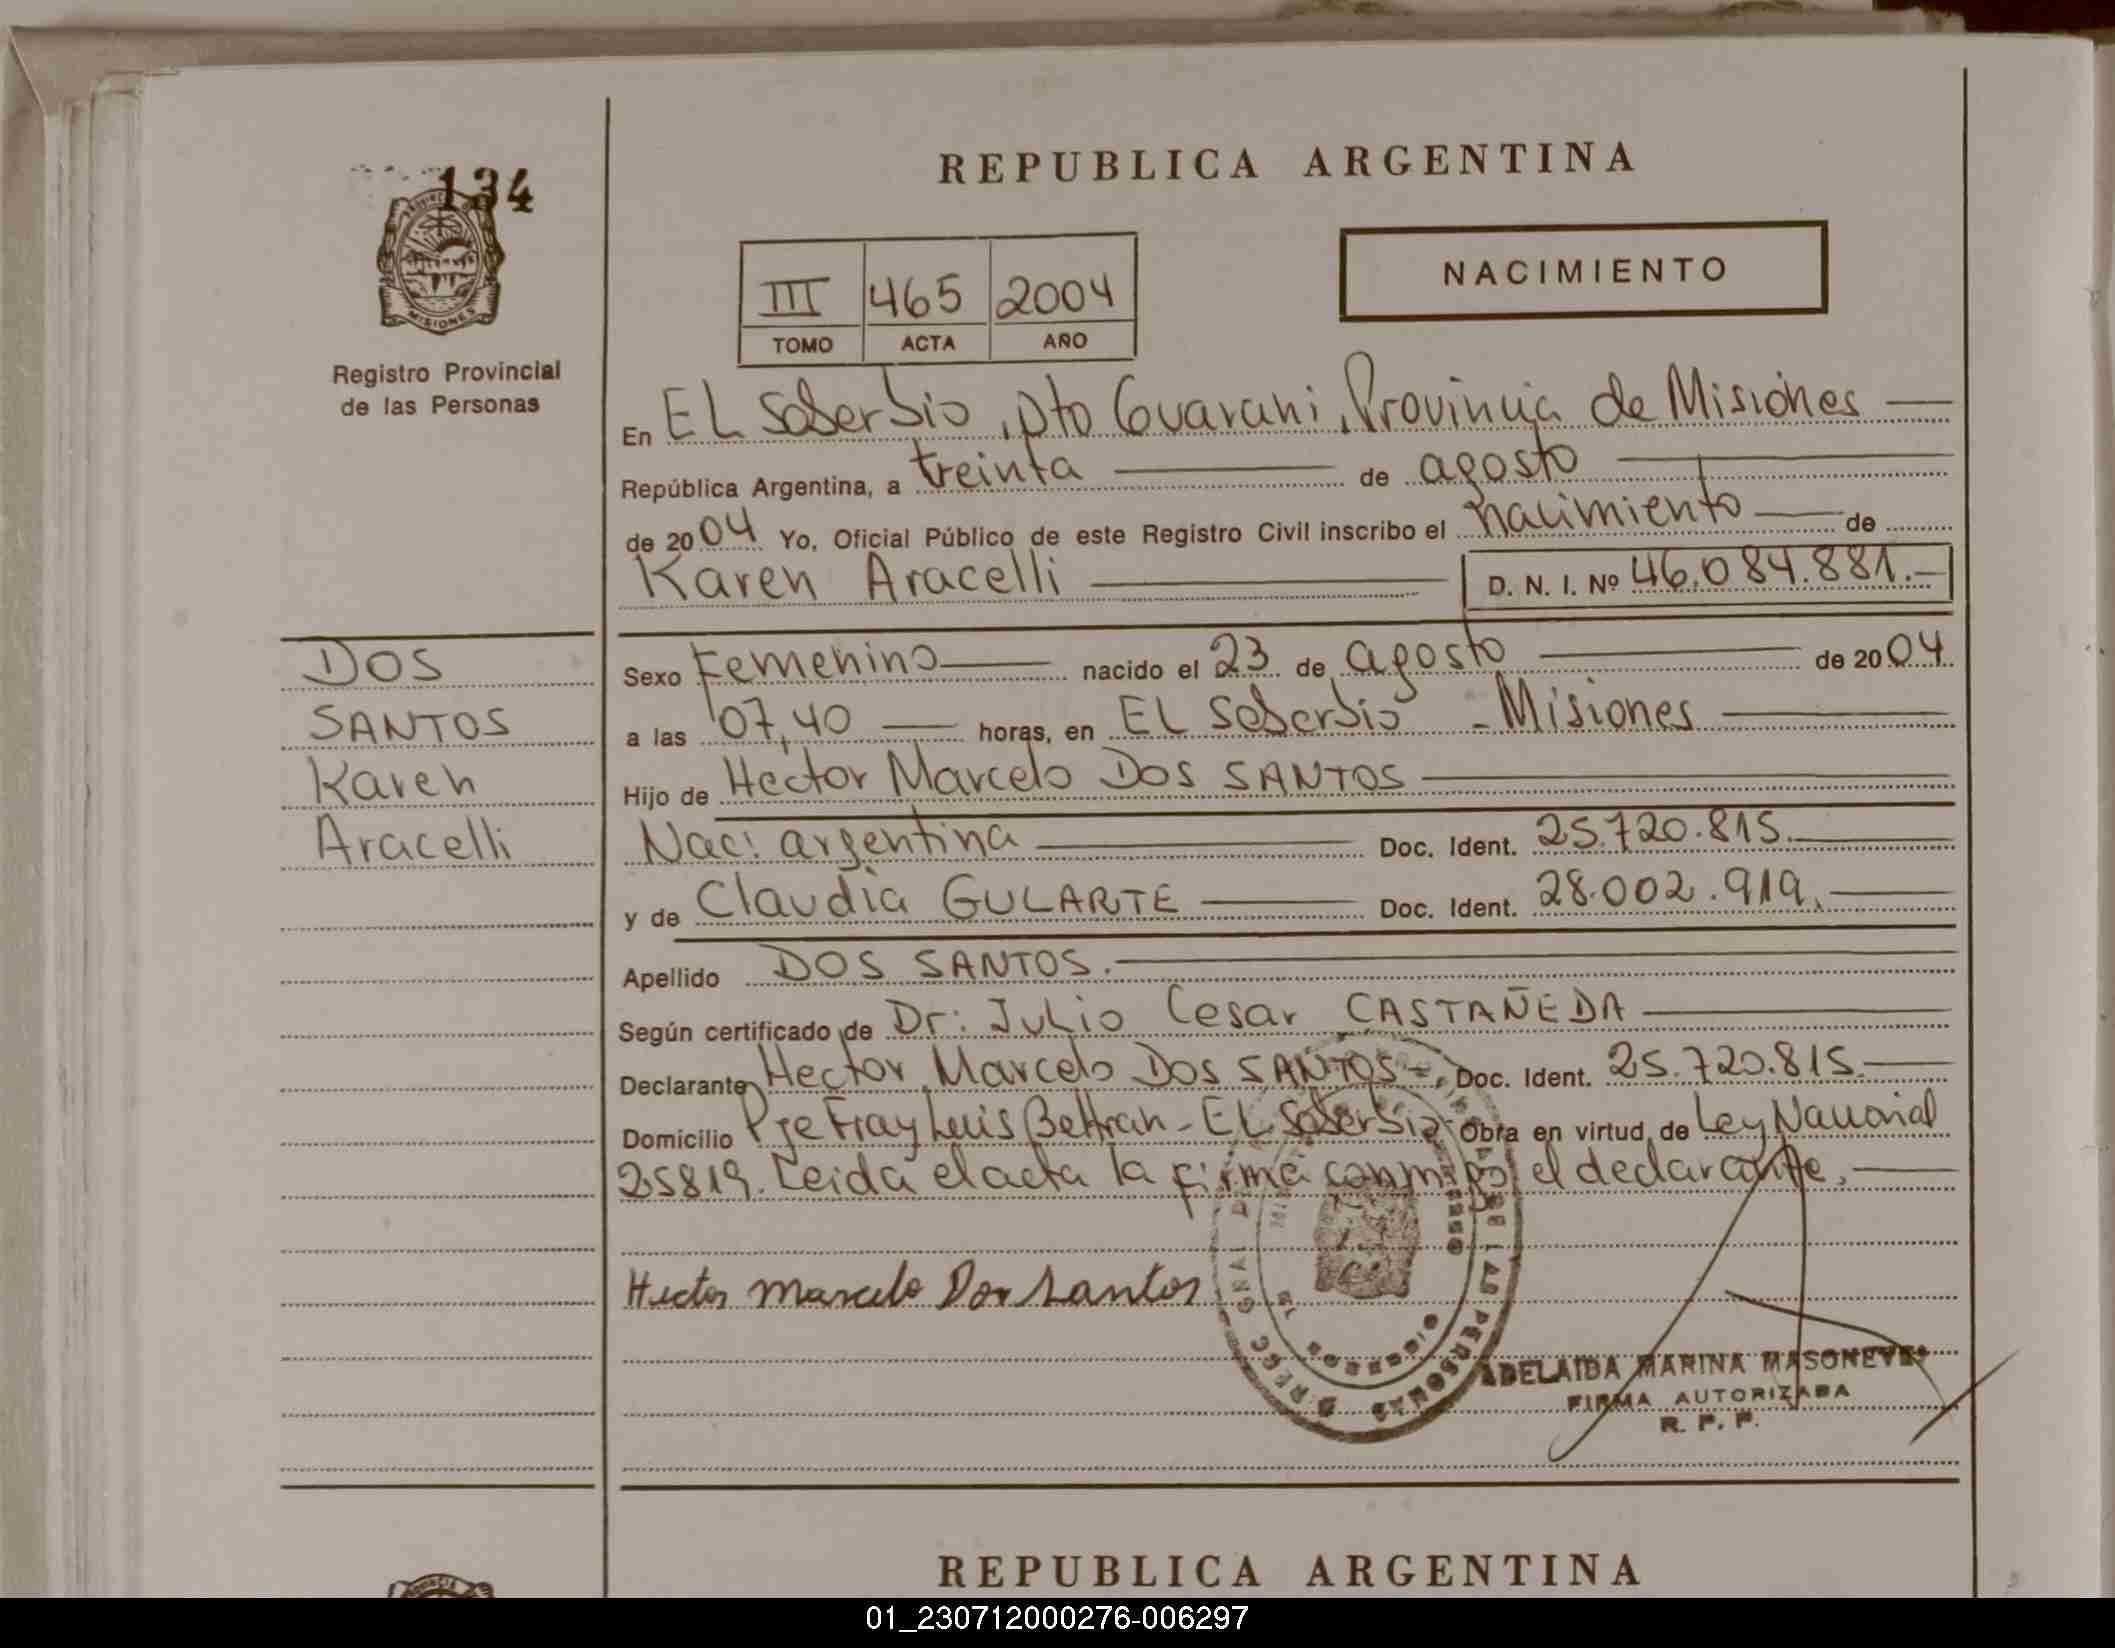 134
MISIONES
Registro Provincial
de las Personas
REPUBLICA ARGENTINA
III 465 2004
TOMO ACTA AÑO
NACIMIENTO
En EL Soberbio, Dto Guarani, Provincia de Misiones
República Argentina, a treinta de agosto
de 2004 Yo, Oficial Público de este Registro Civil inscribo el nacimiento de
Karen Aracelli D. N. I. Nº 46.084.881.-
DOS
SANTOS
Karen
Aracelli
Sexo Femenino nacido el 23 de agosto de 2004
a las 07,40 horas, en EL Soberbio - Misiones
Hijo de Hector Marcelo DOS SANTOS
Nac: argentina Doc. Ident. 25.720.815.
y de Claudia GULARTE Doc. Ident. 28.002.919.
Apellido DOS SANTOS.
Según certificado de Dr: Julio Cesar CASTAÑEDA
Declarante Hector Marcelo DOS SANTOS-. Doc. Ident. 25.720.815.
Domicilio Pje Fray Luis Beltran - EL Soberbio Obra en virtud de Ley Nacional
25819. Leida el acta la firma conmigo el declarante.
Hector Marcelo Dos Santos
ADELAIDA MARINA MASONEVE
FIRMA AUTORIZADA
R. P. P.
REPUBLICA ARGENTINA
01_230712000276-006297